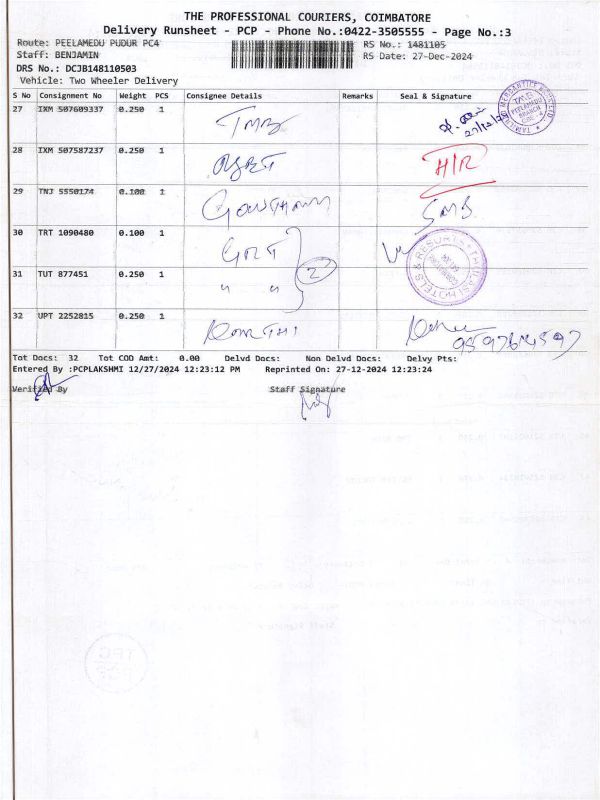 THE PROFESSIONAL COURIERS, COIMBATORE
Delivery Runsheet - PCP - Phone No.:0422-3505555 - Page No.:3
Route: PEELAMEDU PUDUR PC4 RS No.: 1481105
Staff: BENJAMIN RS Date: 27-Dec-2024
DRS No.: DCJB148110503
Vehicle: Two Wheeler Delivery
S No Consignment No Weight PCS Consignee Details Remarks Seal & Signature
27 IXM 507609337 0.250 1 TMB 27/12/24
28 IXM 507587237 0.250 1 H/R
29 TNJ 5550174 0.100 1 Gowtham SMS
30 TRT 1090480 0.100 1 GRT
31 TUT 877451 0.250 1 " " 2
32 UPT 2252815 0.250 1
Tot Docs: 32 Tot COD Amt: 0.00 Delvd Docs: Non Delvd Docs: Delvy Pts:
Entered By :PCPLAKSHMI 12/27/2024 12:23:12 PM Reprinted On: 27-12-2024 12:23:24
Verified By Staff Signature